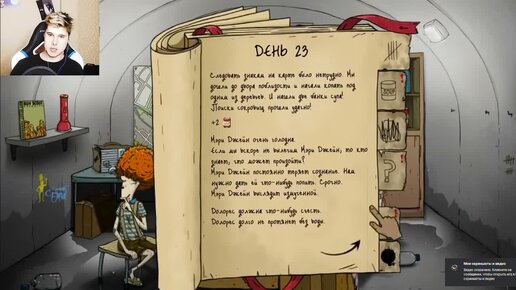 ДЕНЬ 23
Следовать знакам на карте было нетрудно. Мы
дошли до двора поблизости и начали копать под
одним из деревьев. И нашли две банки супа!
Поиски сокровищ прошли удачно!
+2
Мэри Джейн очень голодна.
Если мы вскоре не вылечим Мэри Джейн, то кто
знает, что может произойти?
Мэри Джейн постоянно теряет сознание. Нам
нужно дать ей что-нибудь попить. Срочно.
Мэри Джейн выглядит измученной.
Долорес должна что-нибудь съесть.
Долорес долго не протянет без воды.
Мои скриншоты и видео
Видео сохранено. Кликните на
сообщение, чтобы открыть его в